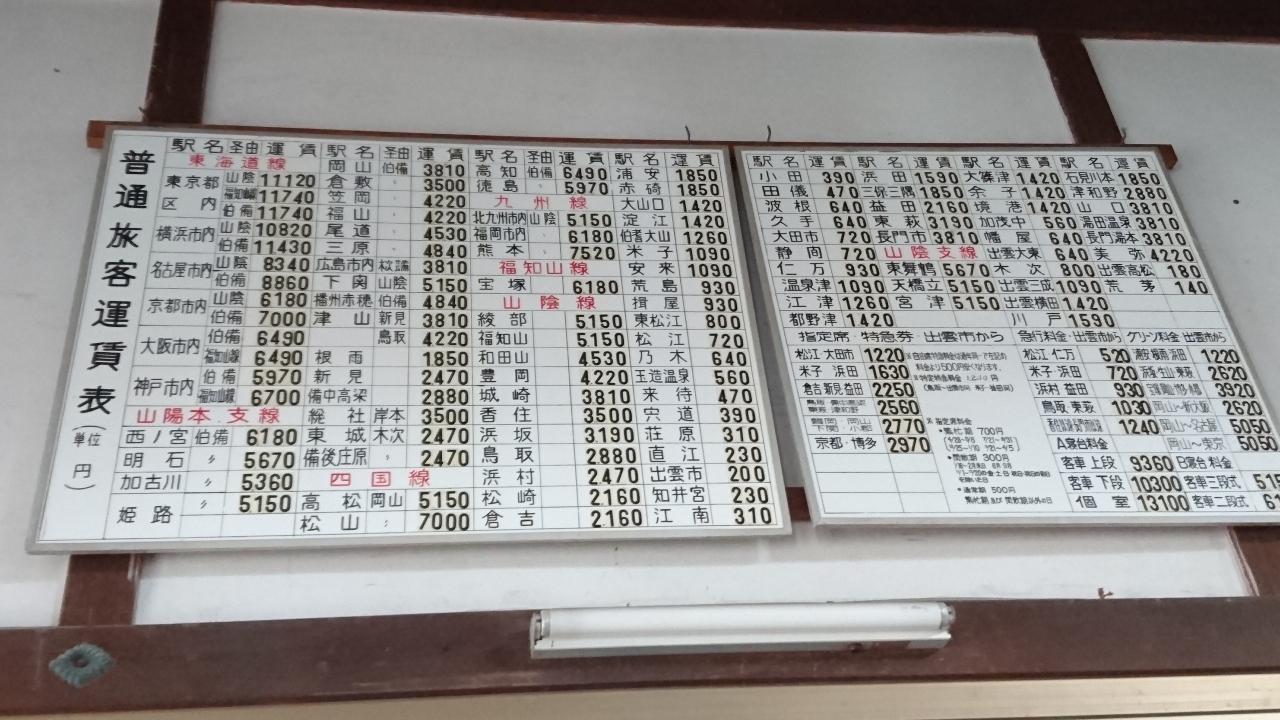 普通旅客運賃表
(単位 円)
駅名 経由 運賃 駅名 経由 運賃 駅名 経由 運賃 駅名 運賃
東海道線 岡山 伯備 3810 高知 伯備 6490 浦安 1850
東京都区内 山陰 11120 倉敷 〃 3500 徳島 〃 5970 赤碕 1850
福知山線 11740 笠岡 〃 4220 九州線 大山口 1420
伯備 11740 福山 〃 4220 北九州市内 山陰 5150 淀江 1420
横浜市内 山陰 10820 尾道 〃 4530 福岡市内 〃 6180 伯耆大山 1260
伯備 11430 三原 〃 4840 熊本 〃 7520 米子 1090
名古屋市内 山陰 8340 広島市内 3810 福知山線 安来 1090
伯備 8860 下関 山陰 5150 宝塚 6180 荒島 930
京都市内 山陰 6180 播州赤穂 伯備 4840 山陰線 揖屋 930
伯備 7000 津山 新見 3810 綾部 5150 東松江 800
大阪市内 伯備 6490 鳥取 4220 福知山 5150 松江 720
福知山線 6490 根雨 1850 和田山 4530 乃木 640
神戸市内 伯備 5970 新見 2470 豊岡 4220 玉造温泉 560
福知山線 6700 備中高梁 2880 城崎 3810 来待 470
山陽本.支線 総社 岸本 3500 香住 3500 宍道 390
西ノ宮 伯備 6180 東城 木次 2470 浜坂 3190 荘原 310
明石 〃 5670 備後庄原 〃 2470 鳥取 2880 直江 230
加古川 〃 5360 四国線 浜村 2470 出雲市 200
姫路 〃 5150 高松 岡山 5150 松崎 2160 知井宮 230
松山 〃 7000 倉吉 2160 江南 310
駅名 運賃 駅名 運賃 駅名 運賃 駅名 運賃
小田 390 浜田 1590 大篠津 1420 石見川本 1850
田儀 470 三保三隅 1850 余子 1420 津和野 2880
波根 640 益田 2160 境港 1420 山口 3810
久手 640 東萩 3190 加茂中 560 湯田温泉 3810
大田市 720 長門市 3810 幡屋 640 長門湯本 3810
静間 720 山陰支線 出雲大東 640 美弥 4220
仁万 930 東舞鶴 5670 木次 800 出雲高松 180
温泉津 1090 天橋立 5150 出雲三成 1090 荒茅 140
江津 1260 宮津 5150 出雲横田 1420
都野津 1420 川戸 1590
指定席 特急券・出雲市から 急行料金・出雲市から グリーン料金 出雲市から
松江 大田市 1220 松江 仁万 520 1220
米子 浜田 1630 米子・浜田 720 2620
倉吉・新見・益田 2250 浜村 益田 930 3920
2560 鳥取、東萩 1030 岡山〜新大阪 2620
2770 1240 岡山〜名古屋 5050
京都・博多 2970 A寝台料金 岡山〜東京 5050
※指定席料金
・繁忙期 700円
・閑散期 300円
・通常期 500円
客車 上段 9360 B寝台料金
客車 下段 10300 客車三段式
個室 13100 客車二段式